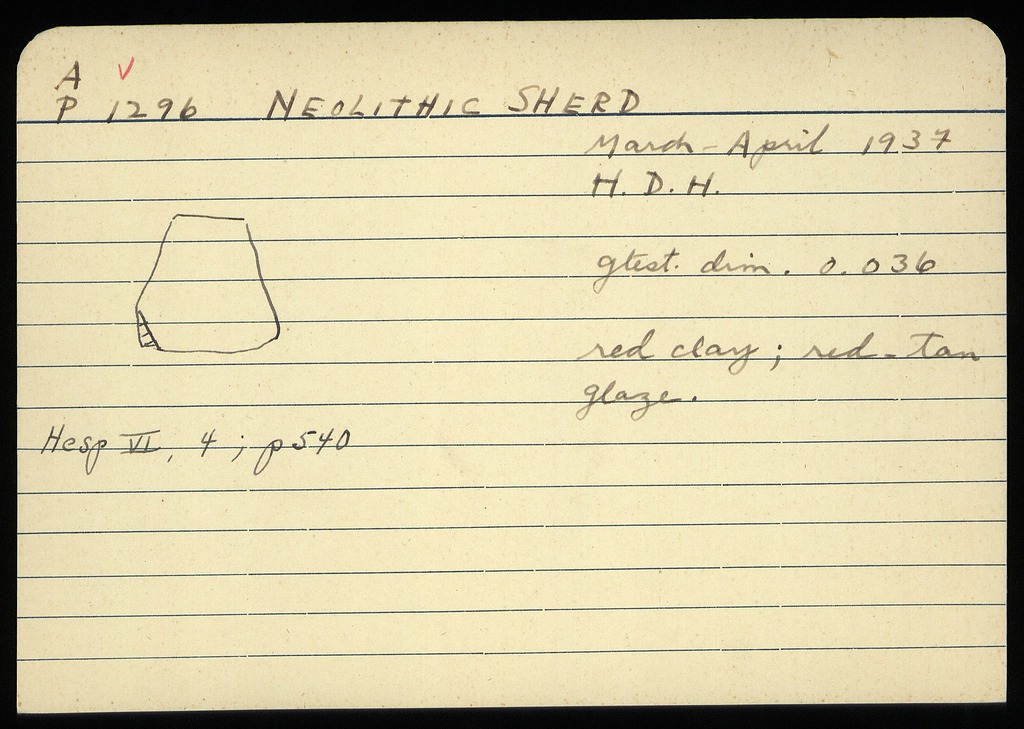 A
P 1296 NEOLITHIC SHERD
March - April 1937
H. D. H.
gtest. dim. 0.036
red clay ; red-tan
glaze.
Hesp VI, 4 ; p 540